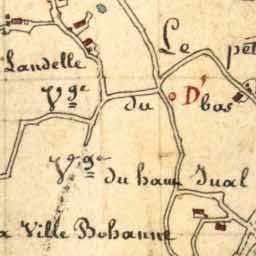 Le pet
Landelle
Vge du bas
D'
Vge du haut Jual
a Ville Bohanne